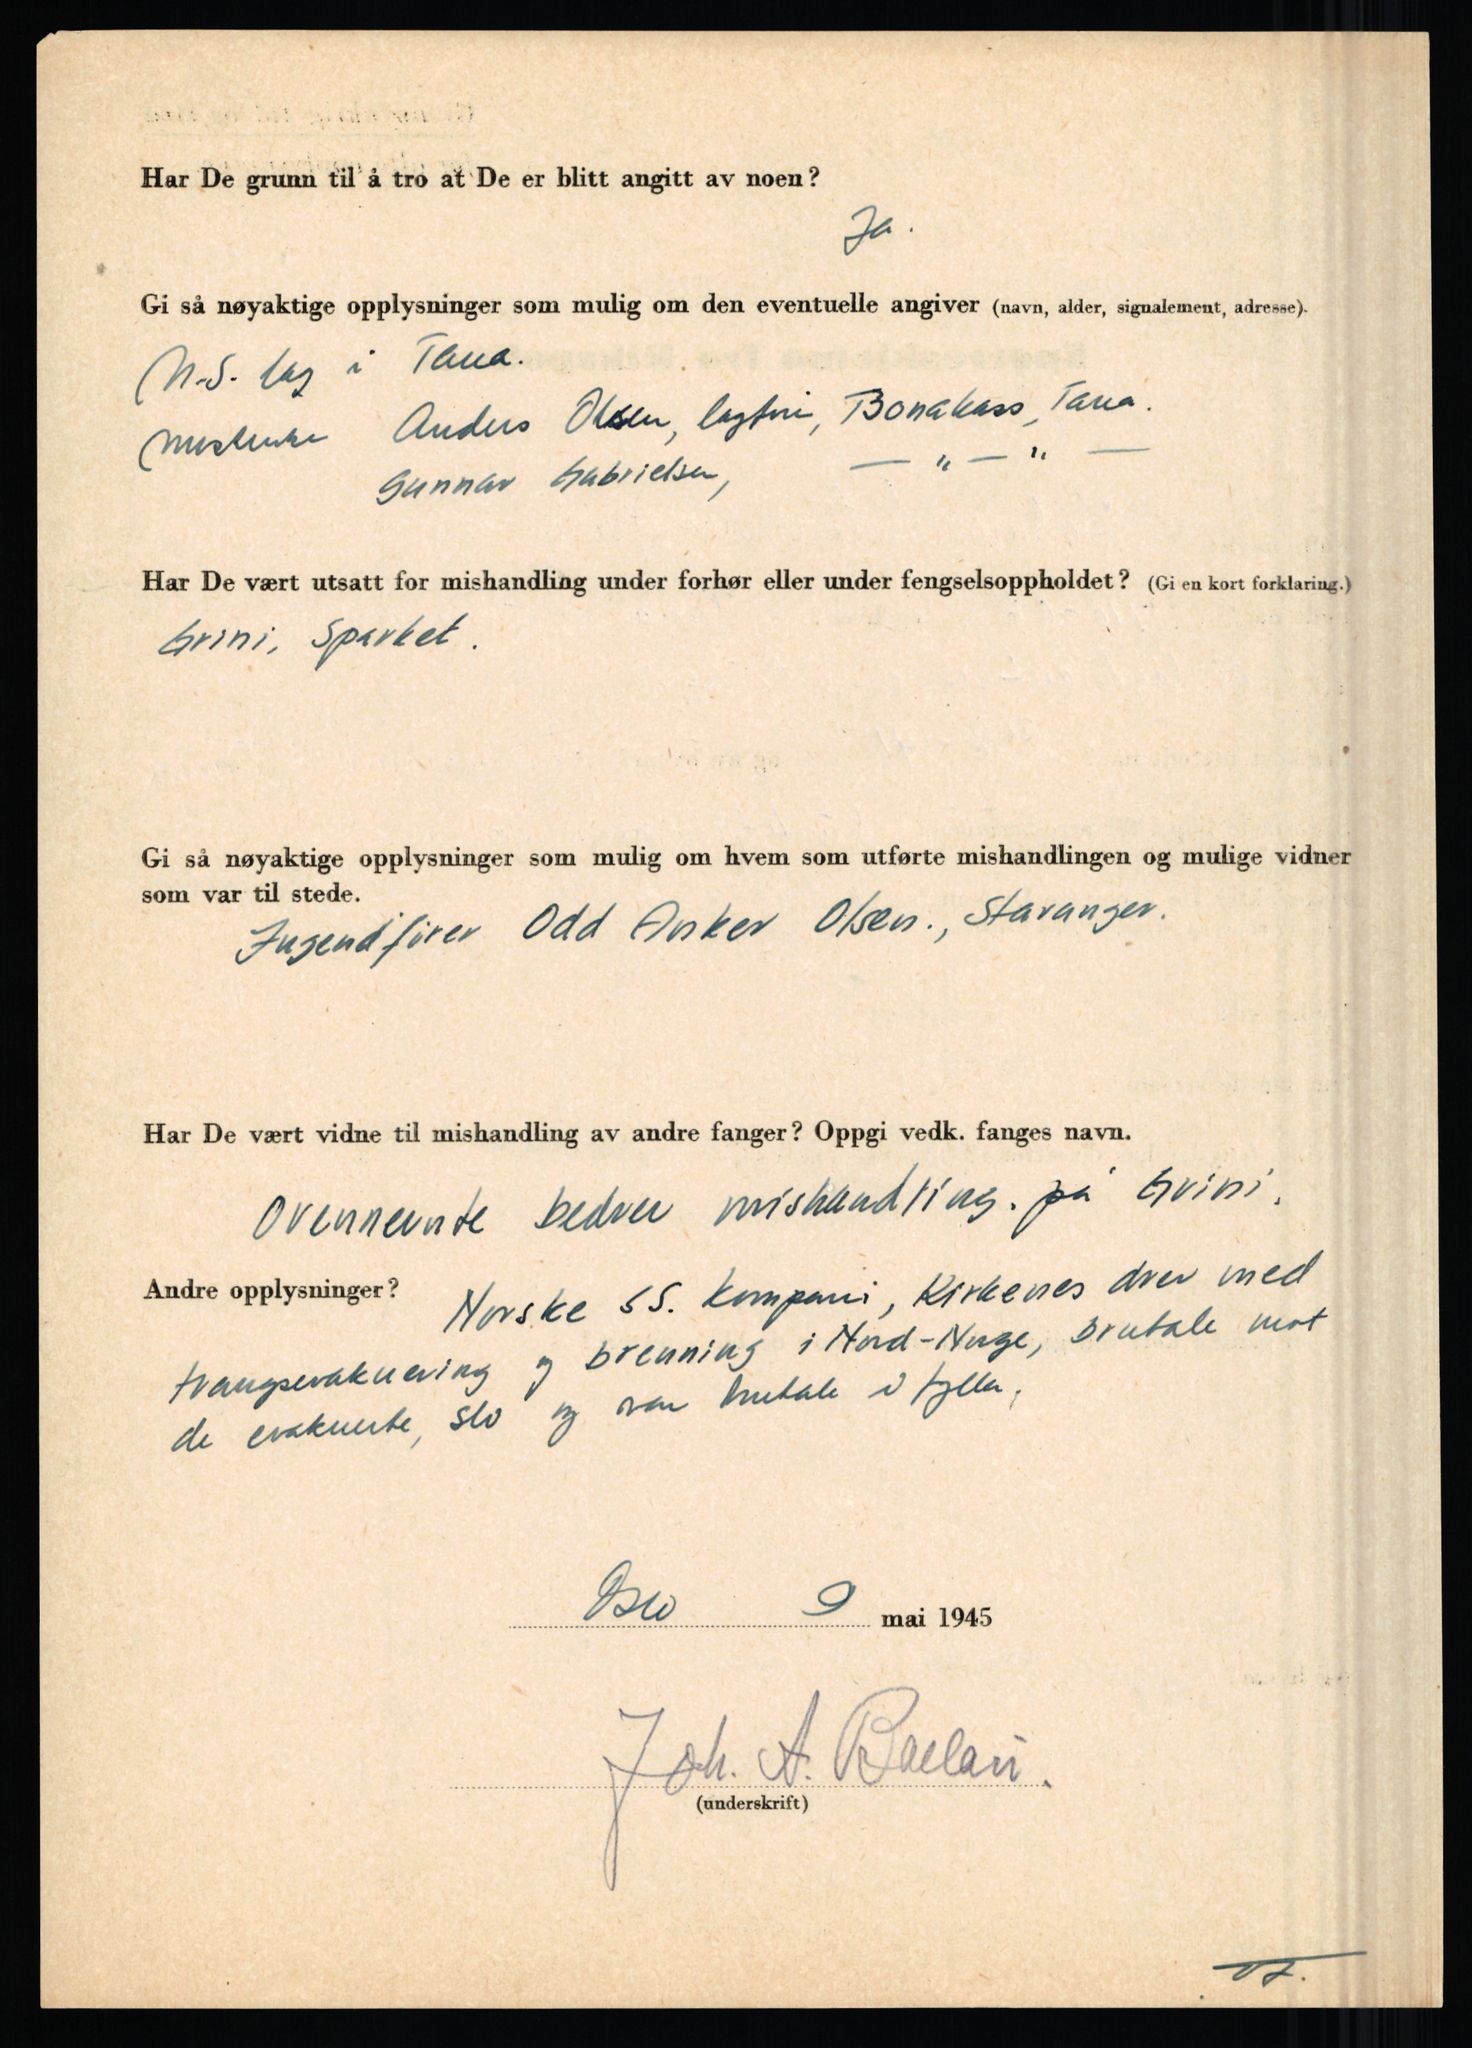 Har De grunn til å tro at De er blitt angitt av noen?
Ja.
Gi så nøyaktige opplysninger som mulig om den eventuelle angiver (navn, alder, signalement, adresse).
N.S. lag i Tana.
Anders Olsen, lagfører, Bonakass, Tana.
Gunnar Gabrielsen, — „ — „ —
Har De vært utsatt for mishandling under forhør eller under fengselsoppholdet? (Gi en kort forklaring.)
Grini, Sparket.
Gi så nøyaktige opplysninger som mulig om hvem som utførte mishandlingen og mulige vidner
som var til stede.
Jugendfører Odd Anker Olsen., Stavanger.
Har De vært vidne til mishandling av andre fanger? Oppgi vedk. fanges navn.
Ovennevnte bedrev mishandling. på Grini.
Andre opplysninger?
Norske SS. kompani, Kirkenes drev med
tvangsevakuering og brenning i Nord-Norge, brutale mot
de evakuerte, slo og var brutale i fylla.
Oslo 9 mai 1945
Joh. A.
(underskrift)